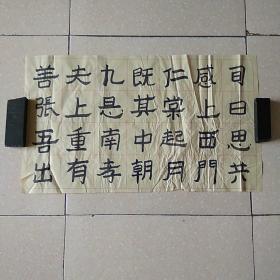 目曰思共
感上西門
仁棠起月
既其中朝
九是南孝
夫上重有
善張吾出